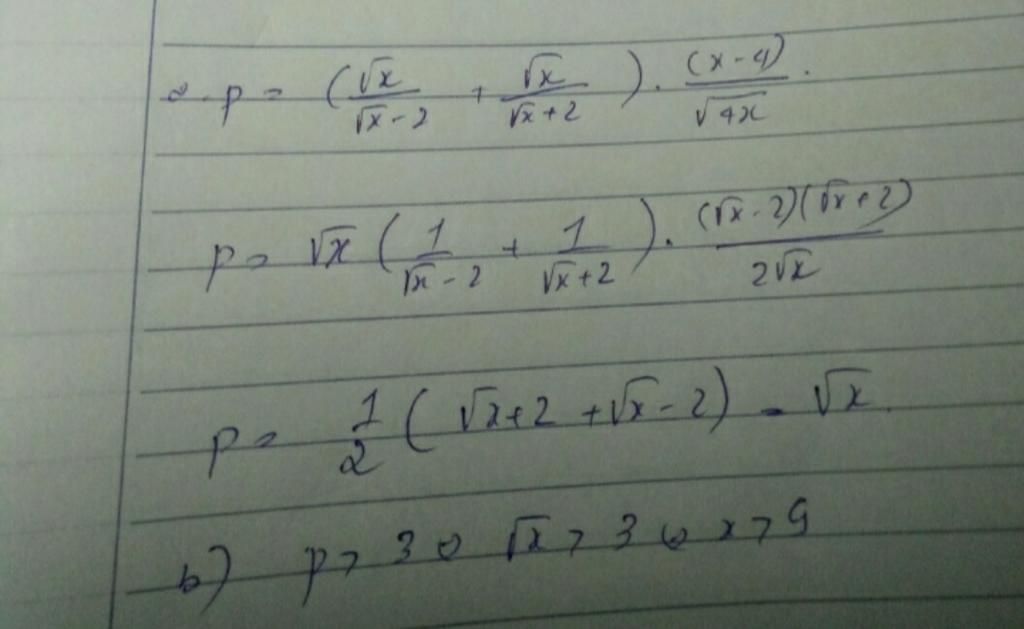 a. p = (√x/(√x-2) + √x/(√x+2)) . (x-4)/√4x .
p = √x (1/(√x-2) + 1/(√x+2)) . (√x-2)(√x+2)/2√x
p = 1/2 (√x+2 +√x-2) = √x.
b) p > 3 ⇔ √x > 3 ⇔ x > 9